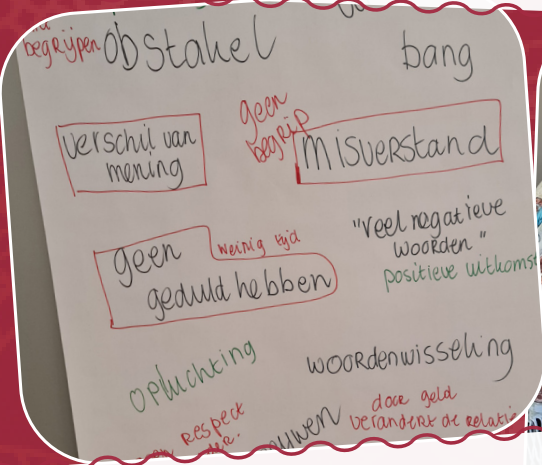 begrijpen
obstakel
bang
verschil van
mening
geen
begrip
misverstand
geen
weinig tijd
geduld hebben
"veel negatieve
woorden"
positieve uitkomst
opluchting
woordenwisseling
respect
door geld
verandert de relatie